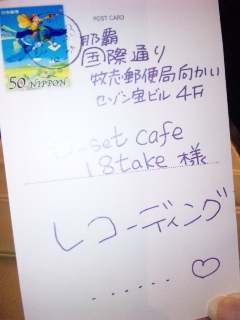 日本郵便
50 NIPPON
POST CARD
那覇
国際通り
牧志郵便局向かい
セゾン宝ビル 4F
-set cafe
18take 様
レコーディング
......♡